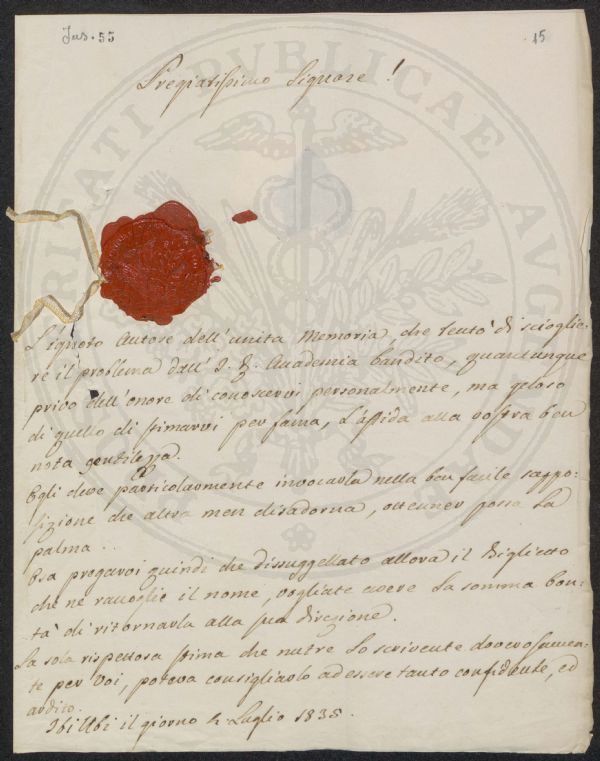 Ins. 55
15
Pregiatissimo Signore!
L'ignoto Autore dell'unita Memoria, che tentò di scioglie-
re il problema dall'I. & R. Accademia bandito, quantunque
privo dell'onore di conoscervi personalmente, ma geloso
di quello di stimarvi per fama, L'affida alla vostra ben
nota gentilezza.
Egli deve particolarmente invocarla nella ben facile suppo-
sizione che altra men disadorna, ottener possa La
palma..
Osa pregarvi quindi che dissuggellato allora il Biglietto
che ne raccoglie il nome, vogliate avere La somma bon-
tà di ritornarla alla sua direzione.
La sola rispettosa stima che nutre Lo scrivente doverosamen-
te per Voi, poteva consigliarlo ad essere tanto confidente, ed
ardito.
Ibi Ubi il giorno 2 Luglio 1835.
PUBLICAE